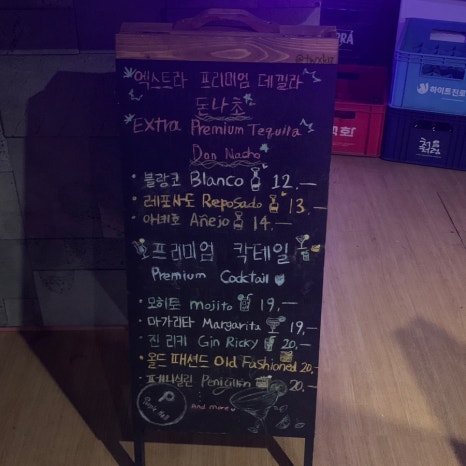 엑스트라 프리미엄 데낄라
돈나쵸
Extra Premium Tequila
Don Nacho
• 블랑코 Blanco 12.—
• 레포사도 Reposado 13.—
• 아녜호 Añejo 14.—
프리미엄 칵테일
Premium Cocktail
• 모히토 mojito 19,—
• 마가리타 Margarita 19,—
• 진 리키 Gin Ricky 20,—
• 올드 패션드 Old Fashioned 20.—
• 페니실린 Penicillin 20.—
And more
P
하이트진로